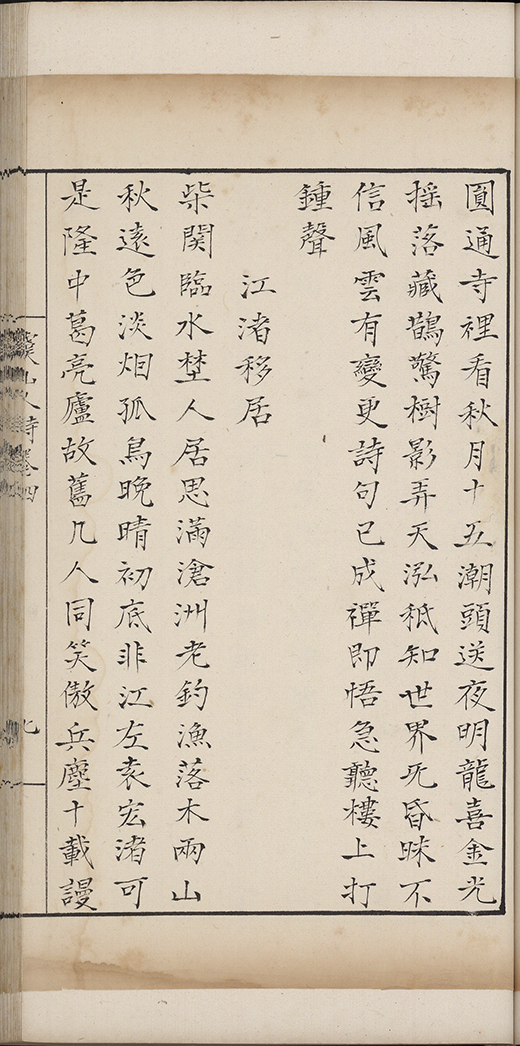 圓通寺裡看秋月十五潮頭送夜明龍喜金光
揺落藏鵲驚樹影弄天泓秪知世界旡昏昧不
信風雲有變更詩句已成禪即悟急聽樓上打
鍾聲
江渚移居
柴関臨水埜人居思滿滄洲老釣漁落木兩山
秋逺色淡烟孤鳥晚晴初底非江左袁宏渚可
是隆中葛亮廬故舊几人同笑傲兵塵十載謾
山人詩卷四
七